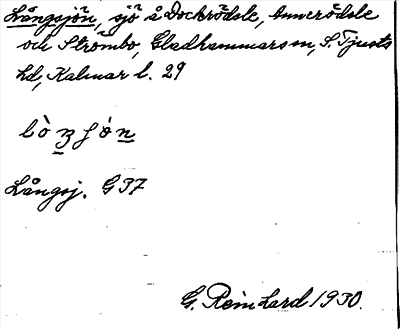 Långsjön, sjö å Dockrödsle, Annerödsle
och Strömbo, Gladhammars sn, S. Tjusts
hd, Kalmar l. 29
Långsj. G 37
G. Reinhard 1930.